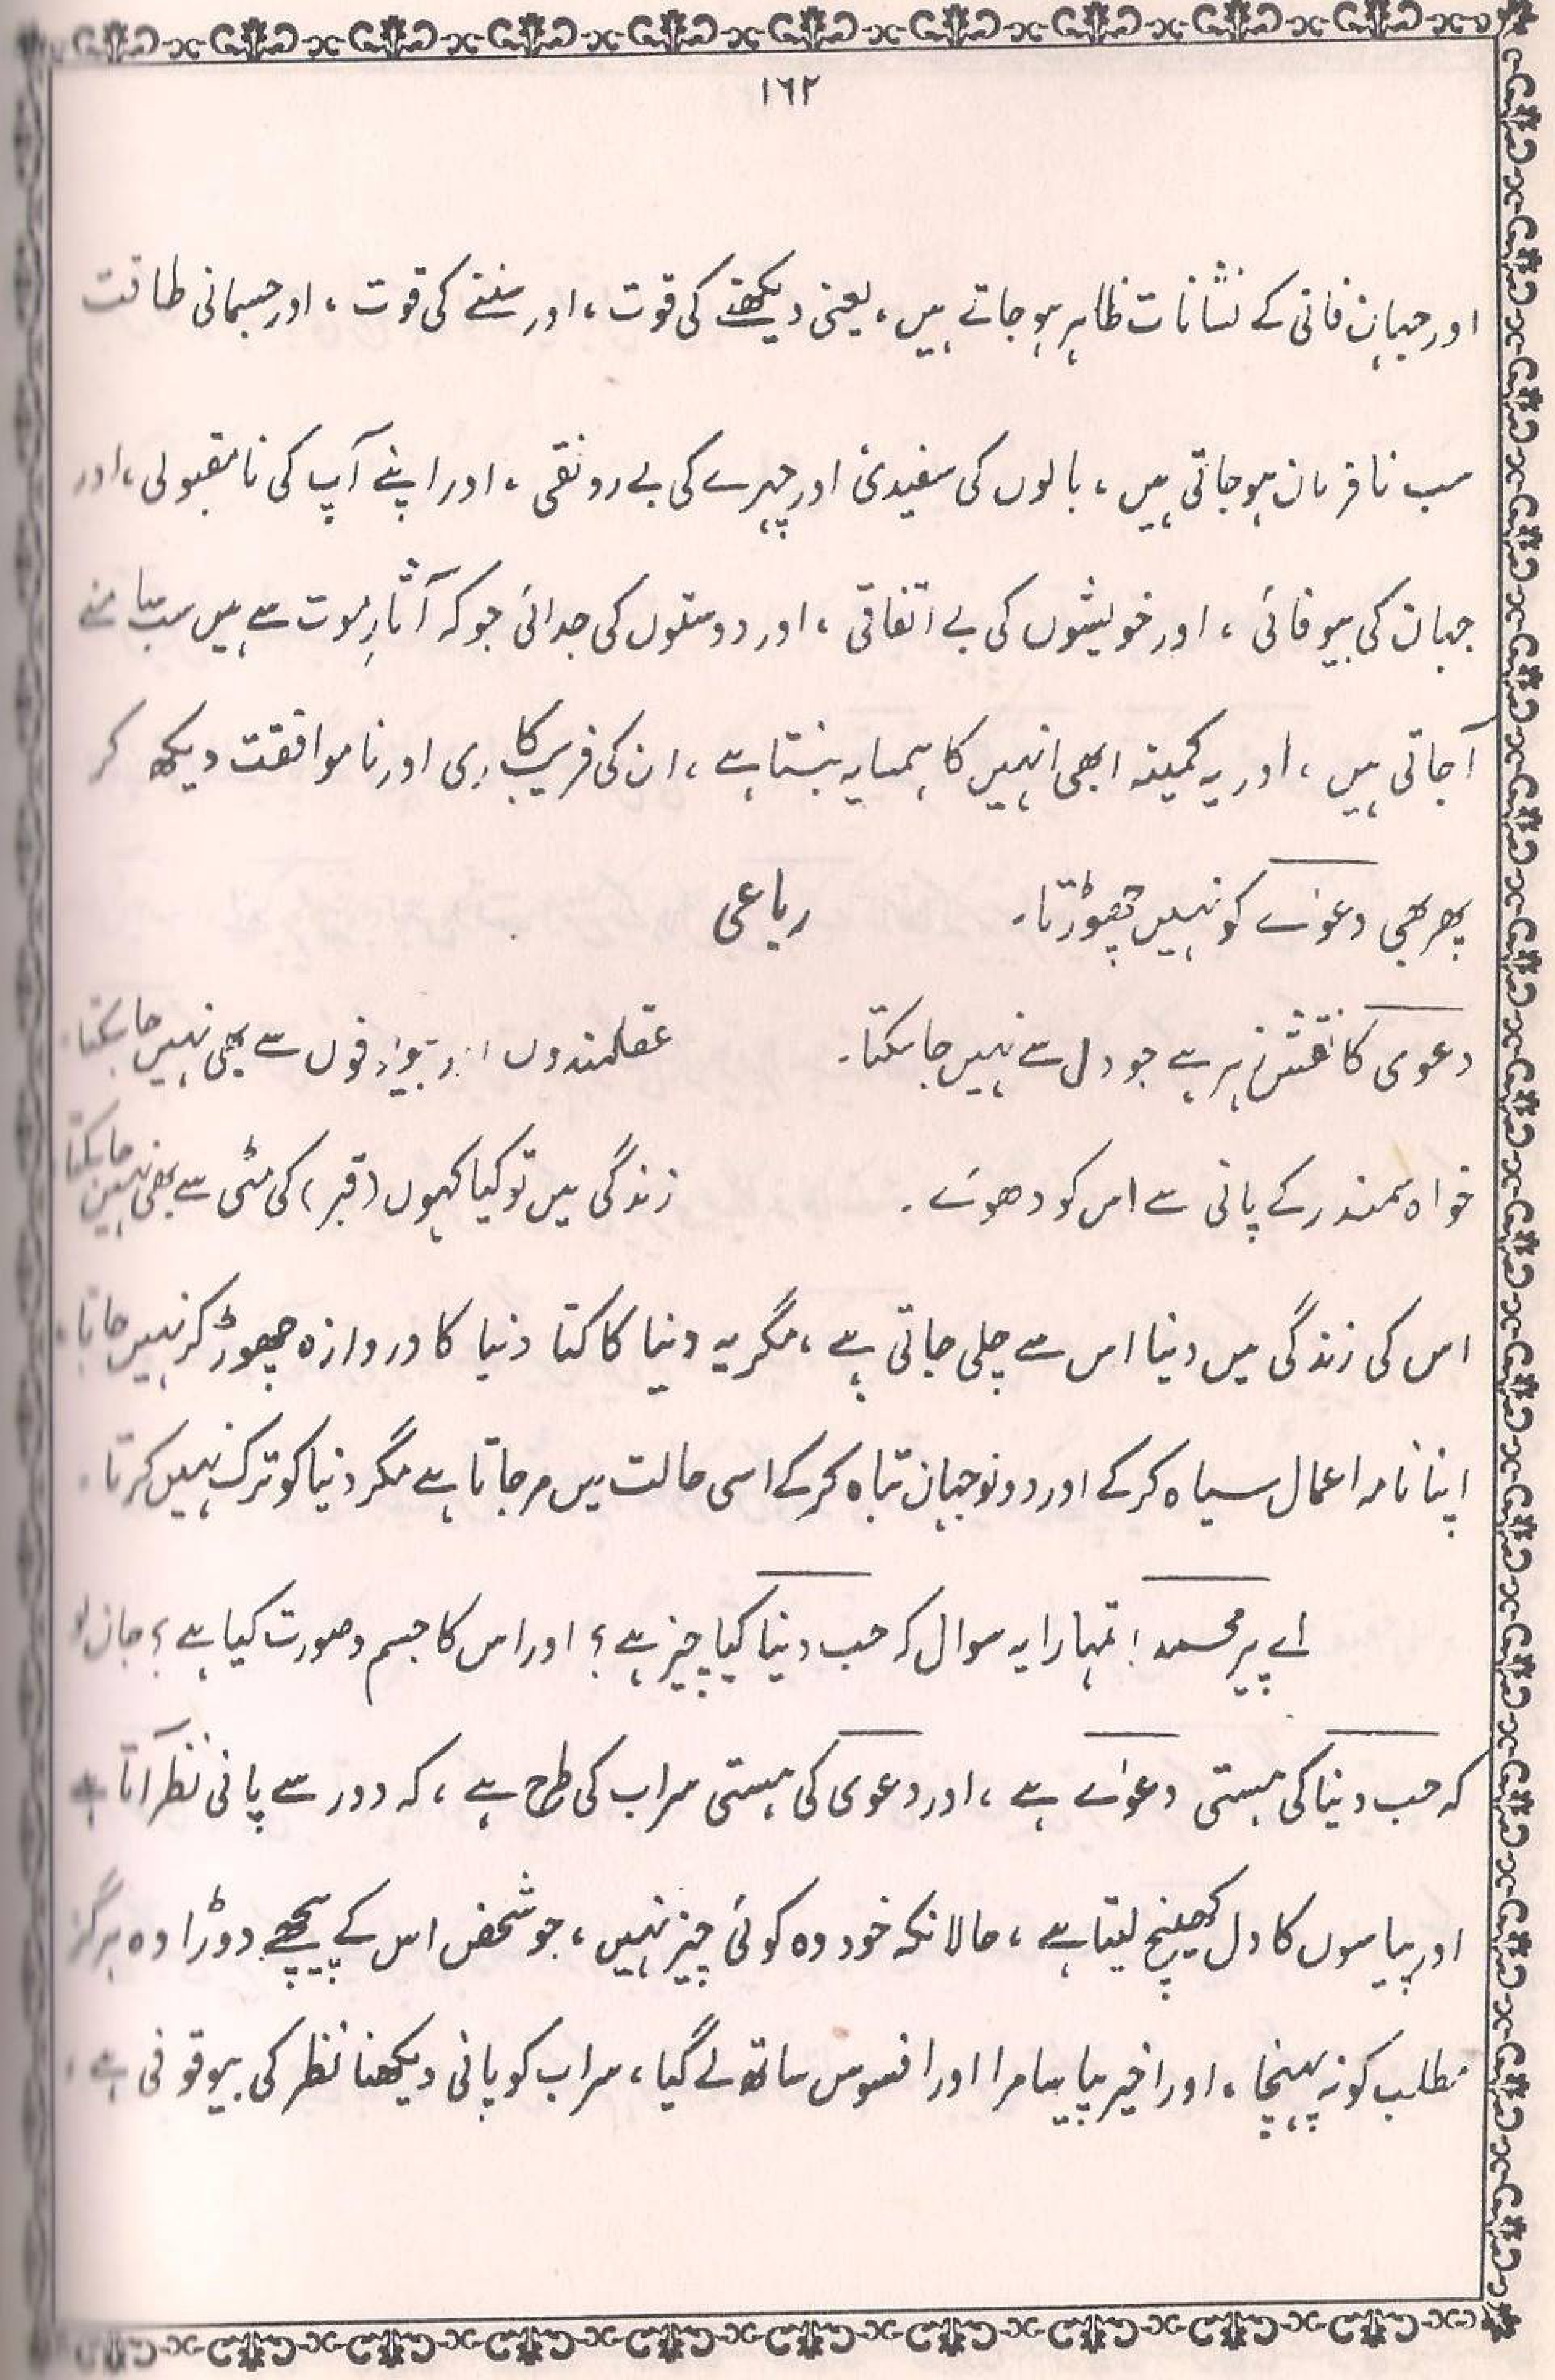 ١٦٢
اور جہانِ فانی کے نشانات ظاہر ہو جاتے ہیں، یعنی دیکھنے کی قوت، اور سننے کی قوت، اور جسمانی طاقت
سب نافرمان ہو جاتی ہیں، بالوں کی سفیدی اور چہرے کی بے رونقی، اور اپنے آپ کی نامقبولی، اور
جہان کی بیوفائی، اور خویشوں کی بے اتفاقی، اور دوستوں کی جدائی جو کہ آثارِ موت سے ہیں سب سامنے
آجاتی ہیں، اور یہ کمینہ ابھی انہیں کا ہمسایہ بنتا ہے، ان کی فریب کاری اور ناموافقت دیکھ کر
پھر بھی دعوٰے کو نہیں چھوڑتا۔ رباعی
دعوی کا نقش زہر ہے جو دل سے نہیں جا سکتا۔ عقلمندوں اور بیوقوفوں سے بھی نہیں جا سکتا۔
خواہ سمندر کے پانی سے اس کو دھوئے۔ زندگی میں تو کیا کہوں (قبر) کی مٹی سے بھی نہیں جا سکتا
اس کی زندگی میں دنیا اس سے چلی جاتی ہے، مگر یہ دنیا کا کتا دنیا کا دروازہ چھوڑ کر نہیں جاتا،
اپنا نامہ اعمال سیاہ کر کے اور دونو جہان تباہ کر کے اسی حالت میں مر جاتا ہے مگر دنیا کو ترک نہیں کرتا۔
اے پیر محمد! تمہارا یہ سوال کہ حب دنیا کیا چیز ہے؟ اور اس کا جسم و صورت کیا ہے؟ جان لو
کہ حب دنیا کی ہستی دعوٰے ہے، اور دعوی کی ہستی سراب کی طرح ہے، کہ دور سے پانی نظر آتا ہے
اور پیاسوں کا دل کھینچ لیتا ہے، حالانکہ خود وہ کوئی چیز نہیں، جو شخص اس کے پیچھے دوڑا وہ ہرگز
مطلب کو نہ پہنچا، اور اخیر پیاسا مرا اور افسوس ساتھ لے گیا، سراب کو پانی دیکھنا نظر کی بیوقوفی ہے،